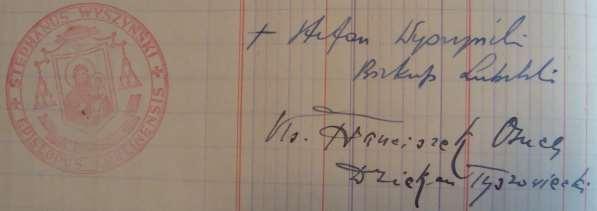 STEPHANUS WYSZYŃSKI
EPISCOPUS LUBLINENSIS
+ Stefan Wyszyński
Biskup Lubelski
Ks. Franciszek Osuch
Dziekan Tyszowiecki